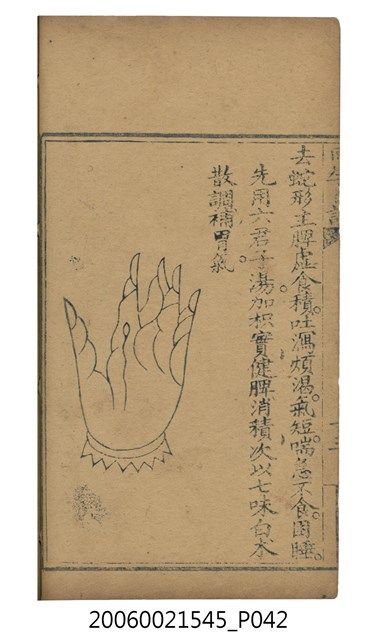 去蛇形主脾虛食積吐瀉煩渴氣短喘急不食困睡
先用六君子湯加枳實健脾消積次以七味白朮
散調補胃氣
20060021545_P042